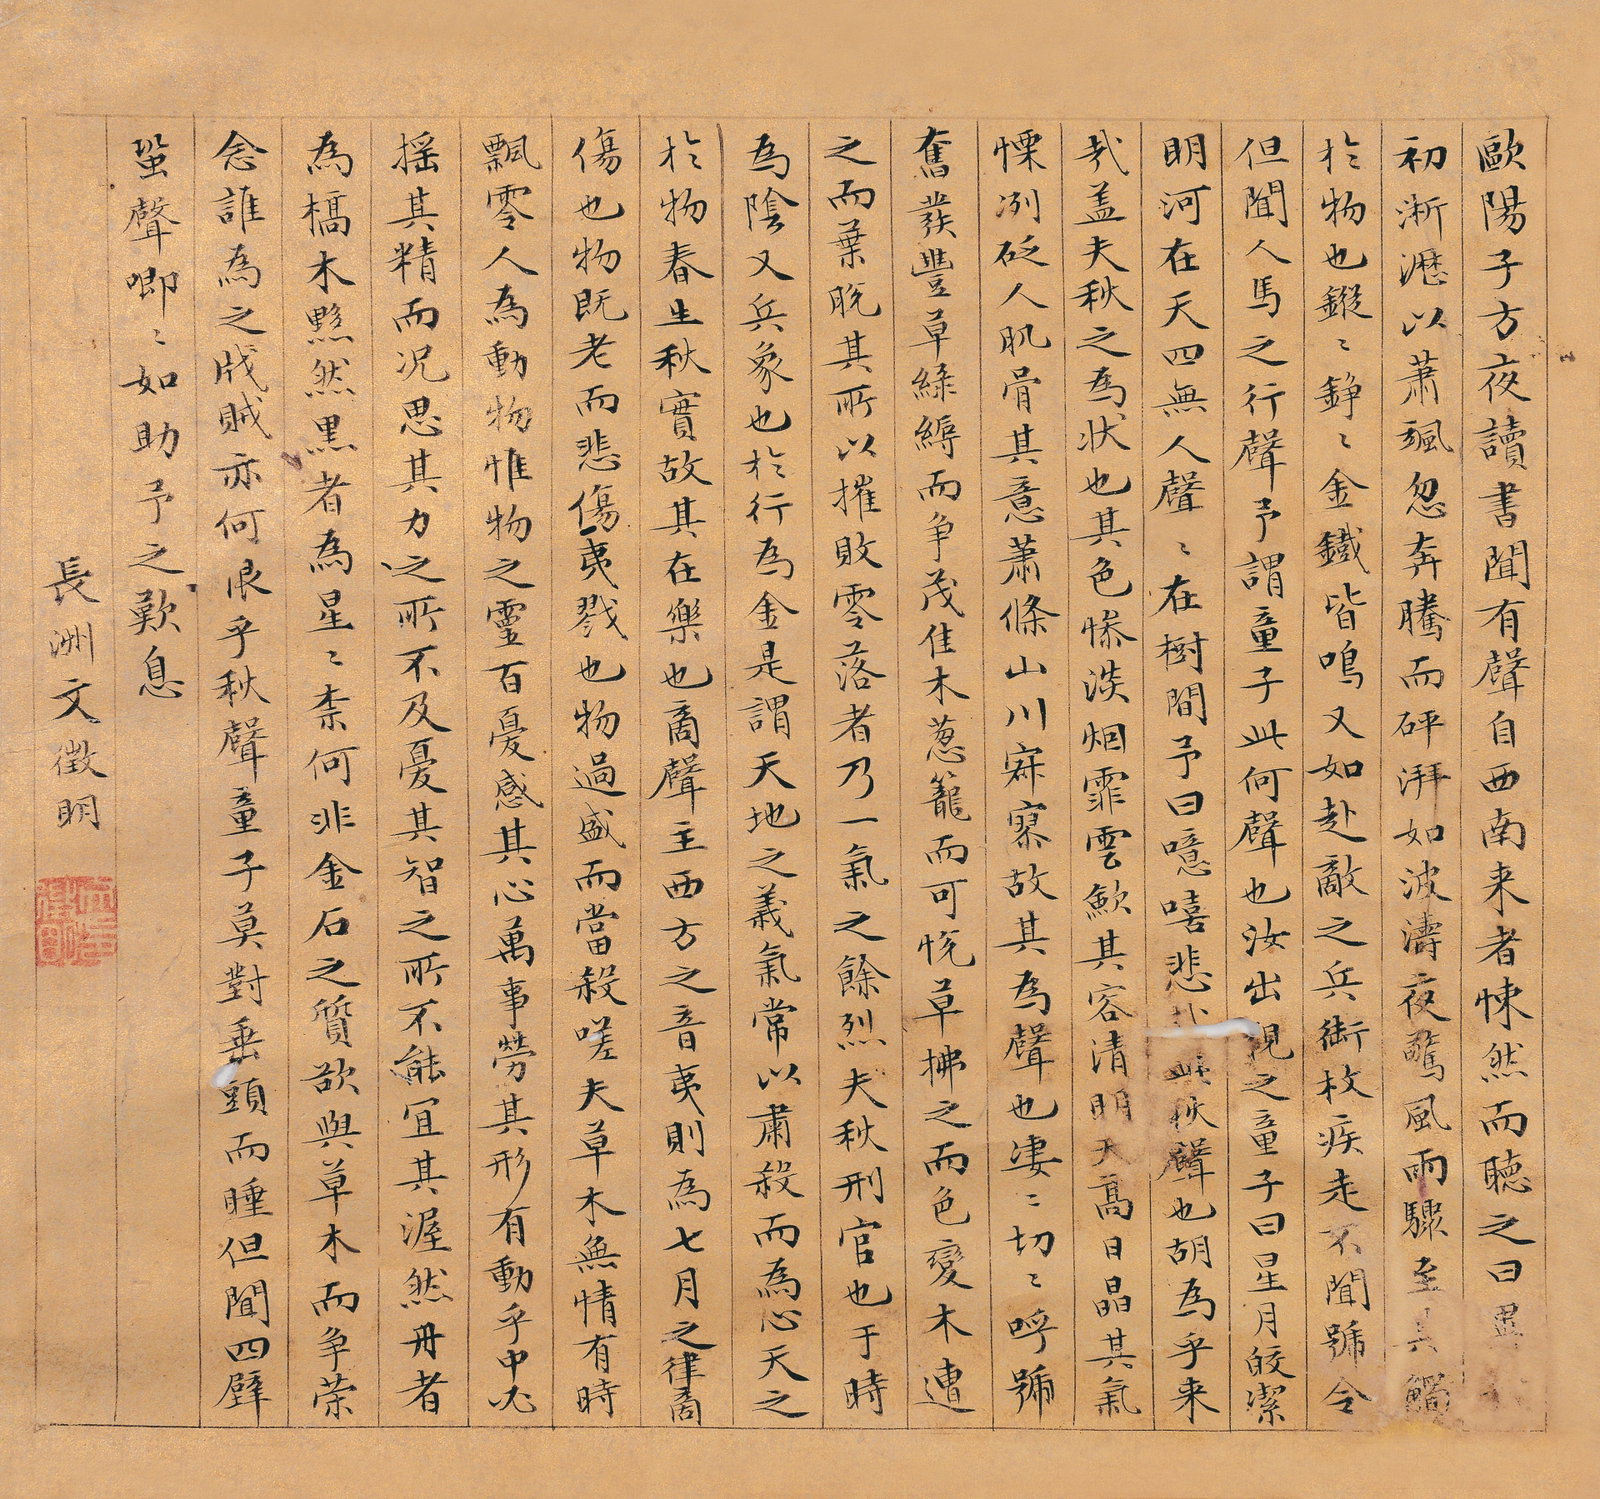 歐陽子方夜讀書聞有聲自西南来者悚然而聴之曰異
初淅瀝以蕭颯忽奔騰而砰湃如波濤夜驚風雨驟至其觸
於物也鏦〻錚〻金鐡皆鳴又如赴敵之兵銜枚疾走不聞號令
但聞人馬之行聲予謂童子此何聲也汝出視之童子曰星月皎潔
明河在天四無人聲〻在樹間予曰噫嘻悲此秋聲也胡為乎来
哉盖夫秋之為状也其色惨淡烟霏雲歛其容清明天髙日晶其氣
慄冽砭人肌骨其意蕭條山川寂寥故其為聲也凄〻切〻呼號
奮發豐草緑縟而争茂佳木葱蘢而可悦草拂之而色變木遭
之而葉脱其所以摧敗零落者乃一氣之餘烈夫秋刑官也于時
為陰又兵象也於行為金是謂天地之義氣常以肅殺而為心天之
於物春生秋實故其在樂也商聲主西方之音夷則為七月之律商
傷也物既老而悲傷夷戮也物過盛而當殺嗟夫草木無情有時
飄零人為動物惟物之靈百憂感其心萬事勞其形有動乎中必
揺其精而况思其力之所不及憂其智之所不能宜其渥然丹者
為槁木黟然黒者為星〻柰何非金石之質欲與草木而争荣
念誰為之戕賊亦何恨乎秋聲童子莫對垂頭而睡但聞四壁
蛩聲唧〻如助予之歎息
長洲文徵明